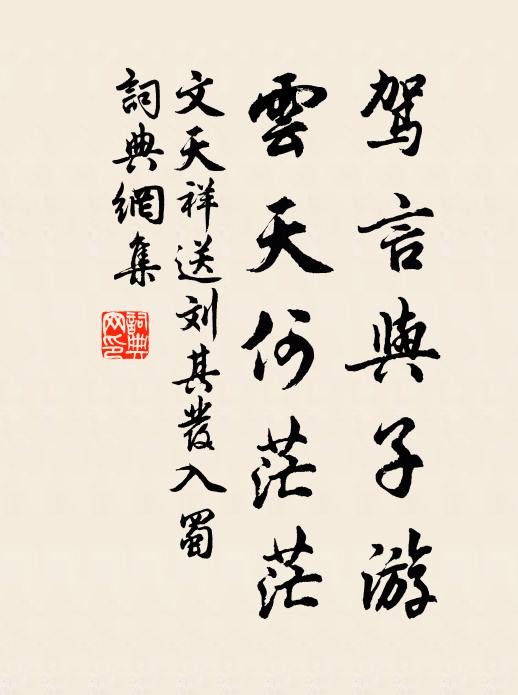 驾言與子游
雲天何茫茫
文天祥送刘其發入蜀
詞典網集
詞典網印